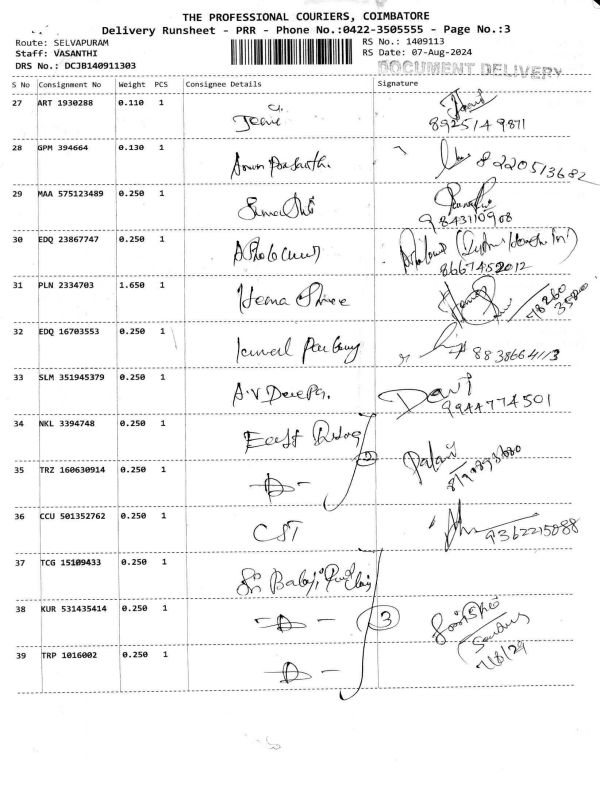 THE PROFESSIONAL COURIERS, COIMBATORE
Delivery Runsheet - PRR - Phone No.:0422-3505555 - Page No.:3
Route: SELVAPURAM
RS No.: 1409113
Staff: VASANTHI
RS Date: 07-Aug-2024
DRS No.: DCJB140911303
DOCUMENT DELIVERY
S No Consignment No Weight PCS Consignee Details Signature
27 ART 1930288 0.110 1
8925149811
28 GPM 394664 0.130 1
8220513682
29 MAA 575123489 0.250 1
9843110908
30 EDQ 23867747 0.250 1
8667452012
31 PLN 2334703 1.650 1 Hema
32 EDQ 16703553 0.250 1 Kamal
8838664113
33 SLM 351945379 0.250 1 A.V Deepa.
9944774501
34 NKL 3394748 0.250 1
2
35 TRZ 160630914 0.250 1 Palani
36 CCU 501352762 0.250 1 CST 9362215088
37 TCG 15109433 0.250 1 Sri Balaji
38 KUR 531435414 0.250 1 3
39 TRP 1016002 0.250 1